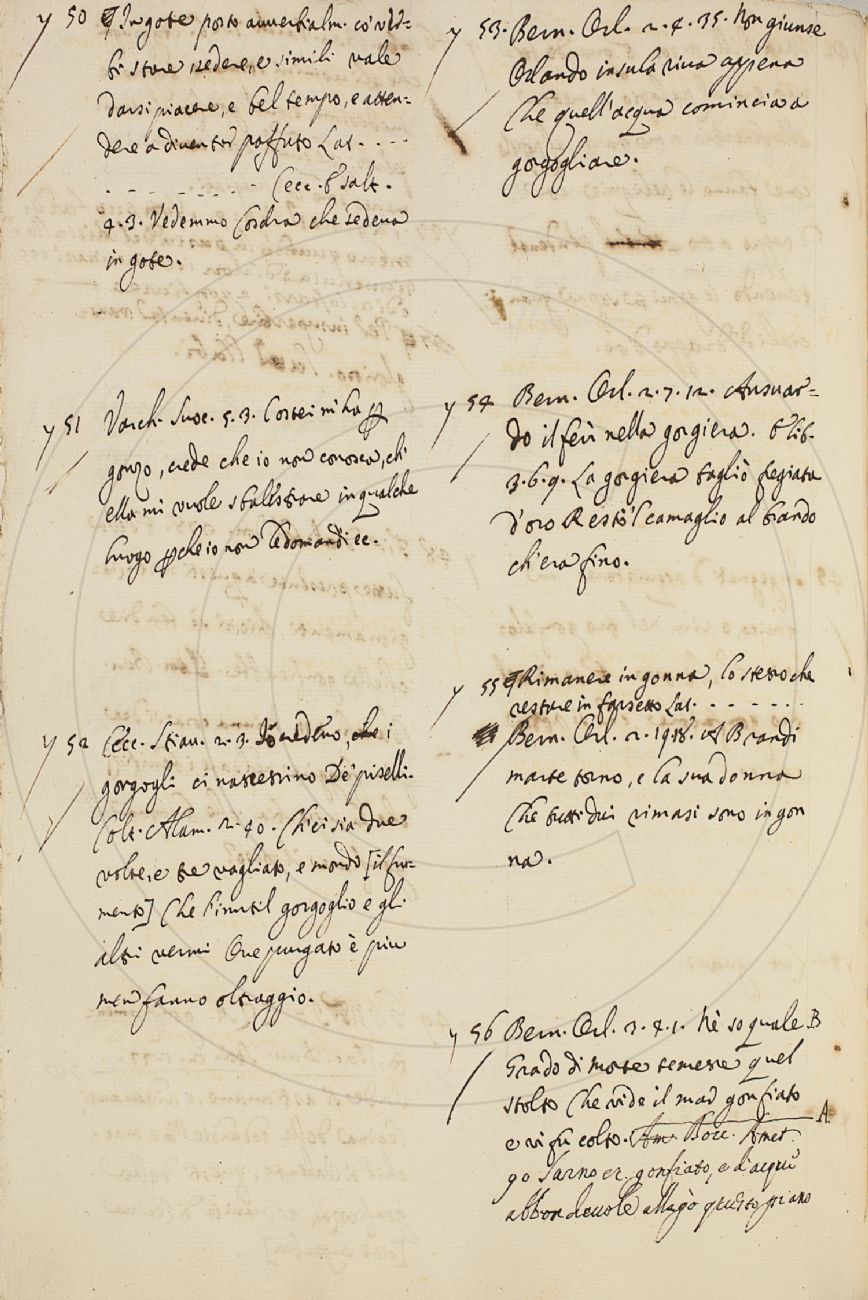 y 50 ¶ In gote posto avverbialm. co' ver=
bi stare, sedere, e simili vale
darsi piacere, e bel tempo, e atten=
dere a diventar paffuto Lat. - - - -
- - - - - - - - - Cecc. Esalt.
4. 3. Vedemmo Cordra che sedeva
in gote.
y 51 Varch. Suoc. 5. 3. Costei mi ha ꝑ
gonzo, crede che io non conosca, ch'
ella mi vuole sbalestrare in qualche
luogo ꝑche io non le domandi ec.
y 52 Cecc. Stiav. 2. 3. Io credevo, che i
gorgogli ci nascessino De' piselli.
Colt. Alam. 2. 40. Ch'ei sia due
volte, e tre vagliato, e mondo [il fru=
mento] Che l'inutil gorgoglio e gli
altri vermi Ove purgato è piu
men fanno oltraggio.
y 53. Bern. Orl. 2. 4. 35. Non giunse
Orlando in sula riva appena
Che quell'acqua comincia a
gorgogliare.
y 54 Bern. Orl. 2. 7. 12. Ansuar=
do il ferì nella gorgiera. E lib.
3. 6. 9. La gorgiera tagliò fregiata
d'oro Restò 'l camaglio al brando
ch'era fino.
y 55 ¶ Rimanere in gonna, lo stesso che
restare in farsetto Lat. - - - - - -
Bern. Orl. 2. 19. A Brandi
marte torno, e la sua donna
Che tutti dui rimasi sono in gon
na.
y 56 Bern. Orl. 3. 4. 1. Nè so quale B
Grado di morte temesse quel
stolto Che vide il mar gonfiato
e vi fu colto. Am. Bocc. Amet. A
90 Sarno ec. gonfiato, e d'acque
abbondevole allagò questo piano